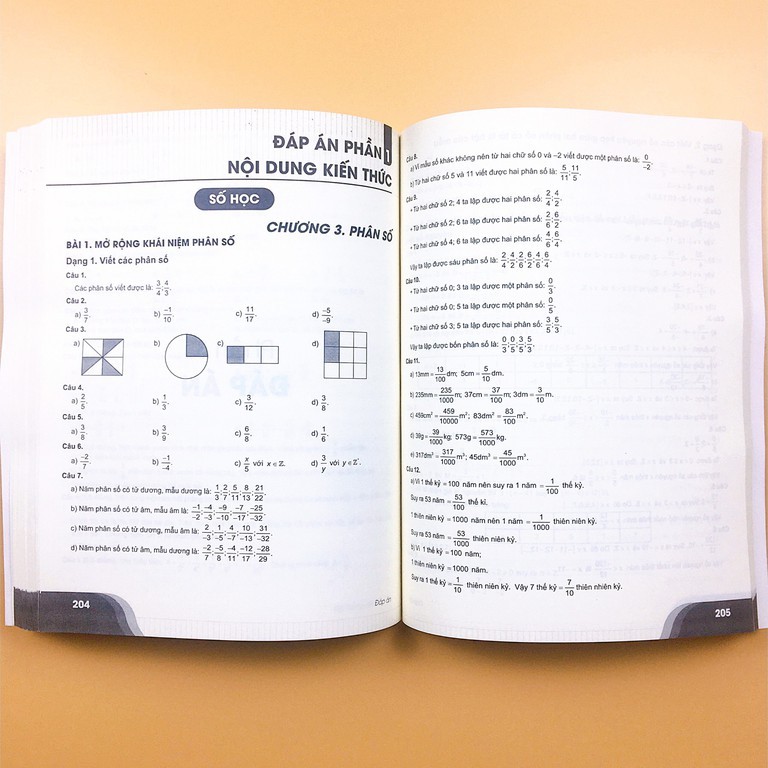 ĐÁP ÁN PHẦN 1
NỘI DUNG KIẾN THỨC
SỐ HỌC
CHƯƠNG 3. PHÂN SỐ
BÀI 1. MỞ RỘNG KHÁI NIỆM PHÂN SỐ
Dạng 1. Viết các phân số
Câu 1.
Các phân số viết được là: 3/4; 4/3.
Câu 2.
a) 3/7. b) -1/10. c) 11/17. d) -5/-9.
Câu 3.
a) b) c) d)
Câu 4.
a) 2/5. b) 1/3. c) 3/12. d) 3/8.
Câu 5.
a) 3/8. b) 3/9. c) 6/8. d) 1/6.
Câu 6.
a) -2/7. b) -1/-4. c) x/5 với x∈ℤ. d) 3/y với y∈ℤ*.
Câu 7.
a) Năm phân số có tử dương, mẫu dương là: 1/3; 2/7; 5/11; 8/13; 21/22
b) Năm phân số có tử âm, mẫu âm là: -1/-2; -4/-3; -9/-10; -7/-17; -25/-32
c) Năm phân số có tử âm, mẫu âm là: 2/-3; 1/-5; 4/-7; 10/-13; 31/-32
d) Năm phân số có tử âm, mẫu dương là: -2/7; -5/8; -4/11; -12/17; -28/29
204
Đáp án
Câu 8.
a) Vì mẫu số khác không nên từ hai chữ số 0 và -2 viết được một phân số là: 0/-2.
b) Từ hai chữ số 5 và 11 viết được hai phân số là: 5/11; 11/5.
Câu 9.
+ Từ hai chữ số 2; 4 ta lập được hai phân số: 2/4; 4/2.
+ Từ hai chữ số 2; 6 ta lập được hai phân số: 2/6; 6/2.
+ Từ hai chữ số 4; 6 ta lập được hai phân số: 4/6; 6/4.
Vậy ta lập được sáu phân số là: 2/4; 4/2; 2/6; 6/2; 4/6; 6/4.
Câu 10.
+ Từ hai chữ số 0; 3 ta lập được một phân số: 0/3.
+ Từ hai chữ số 0; 5 ta lập được một phân số: 0/5.
+ Từ hai chữ số 3; 5 ta lập được hai phân số: 3/5; 5/3.
Vậy ta lập được bốn phân số là: 0/3; 0/5; 3/5; 5/3.
Câu 11.
a) 13mm = 13/100 dm; 5cm = 5/10 dm.
b) 235mm = 235/1000 m; 37cm = 37/100 m; 3dm = 3/10 m.
c) 459cm² = 459/10000 m²; 83dm² = 83/100 m².
d) 39g = 39/1000 kg; 573g = 573/1000 kg.
e) 317dm³ = 317/1000 m³; 45dm³ = 45/1000 m³.
Câu 12.
a) Vì 1 thế kỷ = 100 năm nên suy ra 1 năm = 1/100 thế kỷ.
Suy ra 53 năm = 53/100 thế kỉ.
1 thiên niên kỷ = 1000 năm nên 1 năm = 1/1000 thiên niên kỷ.
Suy ra 53 năm = 53/1000 thiên niên kỷ.
b) Vì 1 thế kỷ = 100 năm;
1 thiên niên kỷ = 1000 năm.
Suy ra 1 thế kỷ = 1/10 thiên niên kỷ. Vậy 7 thế kỷ = 7/10 thiên niên kỷ.
205